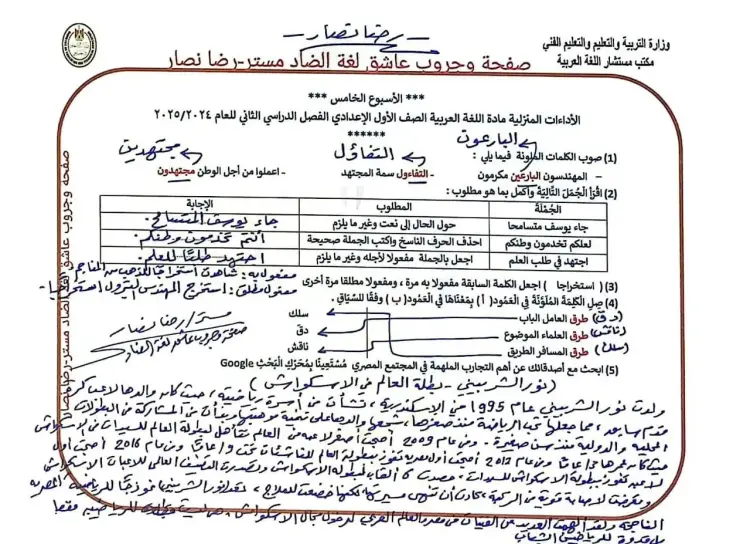 رضا نصار
وزارة التربية والتعليم والتعليم الفني
مكتب مستشار اللغة العربية
صفحة وجروب عاشق لغة الضاد مستر-رضا نصار
*** الأسبوع الخامس ***
الأداءات المنزلية مادة اللغة العربية الصف الأول الإعدادي الفصل الدراسي الثاني للعام ٢٠٢٥/٢٠٢٤
******
البارعون
التفاؤل
مجتهدين
(1) صوب الكلمات الملونة فيما يلي :
- المهندسون البارعين مكرمون - التفاءول سمة المجتهد - اعملوا من أجل الوطن مجتهدون
(2) اقْرَأْ الْجُمَلَ التَّالِيَةَ وَأَكْمِلْ بما هو مطلوب :
الجُمْلَةُ المطلوب الإجابة
جاء يوسف متسامحا حول الحال إلى نعت وغير ما يلزم جاء يوسف المتسامح.
لعلكم تخدمون وطنكم احذف الحرف الناسخ واكتب الجملة صحيحة أنتم تخدمون وطنكم.
اجتهد في طلب العلم اجعل بالجملة مفعولا لأجله وغير ما يلزم اجتهد طلبًا للعلم.
مفعول به: شاهدت استخراج الذهب من المناجم
(3) ( استخراجا ) اجعل الكلمة السابقة مفعولا به مرة ، ومفعولا مطلقا مرة أخرى
مفعول مطلق: استخرج المهندس البترول استخراجا
(4) صِلِ الْكَلِمَةَ الْمُلَوَّنَةَ فِي الْعَمُودِ( أ ) بِمَعْنَاهَا فِي الْعَمُودِ( ب ) وفقًا للسِّيَاقِ .
(دق) طرق العامل الباب سلك
(ناقش) طرق العلماء الموضوع دق
(سلك) طرق المسافر الطريق ناقش
مستر/ رضا نصار
صفحة وجروب عاشق لغة الضاد
(5) ابحث مع أصدقائك عن أهم التجارب الملهمة في المجتمع المصري مُسْتَعِينًا بِمُحَرِّكِ الْبَحْثِ Google
(نور الشربيني - بطلة العالم في الاسكواش)
ولدت نور الشربيني عام 1995 في الإسكندرية، نشأت في أسرة رياضية، حيث كان والدها لاعب كرة
قدم سابقا، مما جعلها تحب الرياضة منذ صغرها، شجعها والدها على تنمية موهبتها وبدأت في المشاركة في البطولات
المحلية والدولية منذ سن صغيرة. وفي عام 2009 أصبحت أصغر لاعبة في العالم تتأهل لبطولة العالم للسيدات في الاسكواش
وفي عام 2012 أصبحت أول مصرية تفوز ببطولة العالم للناشئات تحت وفي عام 2016 أصبحت أول
لاعبة تفوز ببطولة الاسكواش للسيدات، وتصدرت التصنيف العالمي للاعبات الاسكواش
وتعرضت لإصابة قوية في الركبة، كادت أن تنهي مسيرتها لكنها خضعت للعلاج، تعد نور الشربيني نموذجًا للرياضية المصرية
الناجحة ولقد ألهمت العديد من الفتيات في مصر والعالم العربي لدخول مجال الاسكواش، فقط
بل قدوة للرياضيين الشباب
صفحة وجروب عاشق لغة الضاد مستر رضا نصار